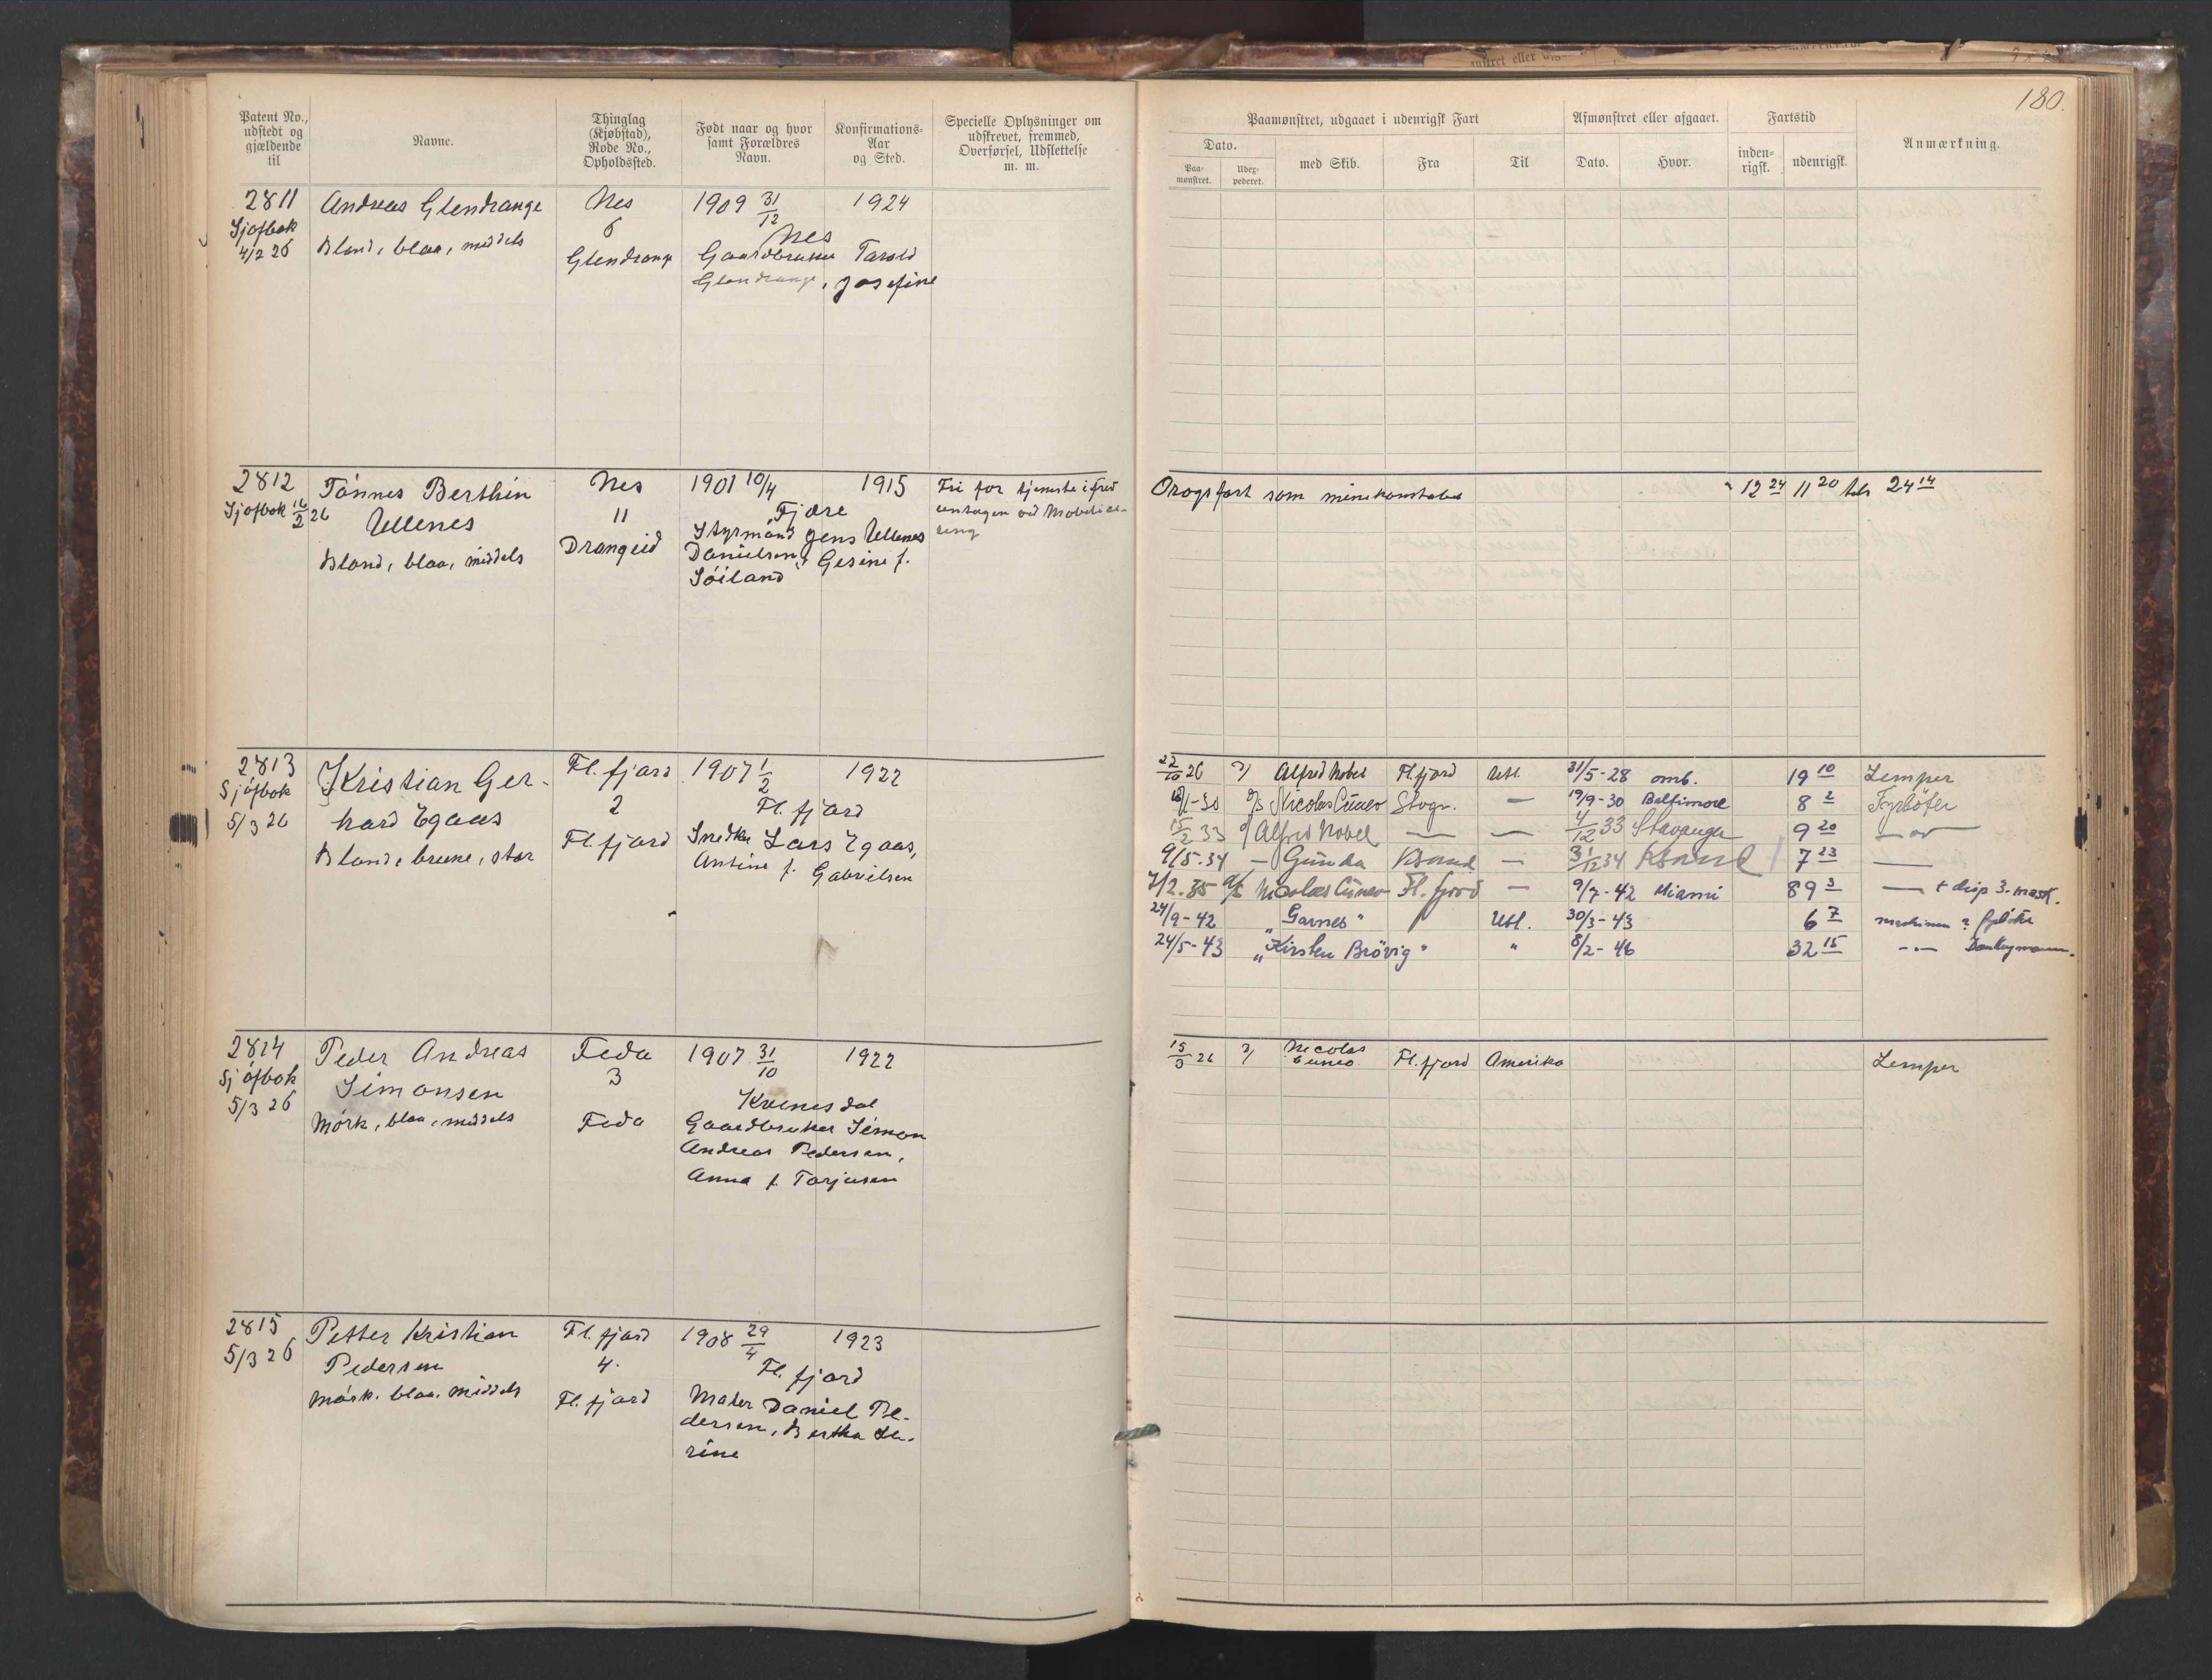 180.
Patent No., udstedt og gjældende til
Navne.
Thinglag (Kjøbstad), Rode No., Opholdssted.
Født naar og hvor samt Forældres Navn.
Konfirmations-Aar og Sted.
Specielle Oplysninger om udskrevet, fremmed, Overførsel, Udslettelse m. m.
Paamønstret, udgaaet i udenrigsk Fart
Afmønstret eller afgaaet.
Fartstid
Anmærkning.
Dato.
Paa-mønstret.
Udex-pederet.
med Skib.
Fra
Til
Dato.
Hvor.
inden-rigsk.
udenrigsk.
2811 Andreas Glendrange Nes 1909 31/12 1924
Sjøfbok 6 Nes
4/2 26 Blond, blaa, middels Glendrange Gaardbruker Tarald
Glendrange, Josefine
2812 Tønnes Berthin Nes 1901 10/4 1915 Fri for tjeneste i fred
Sjøfbok 16/2 26 Ullenes 11 Fjære
Blond, blaa, middels Drangeid Styrmand Jens Ullenes
Danielsen, Gesine f.
Søiland
Orogsfart som minekonstabel 12 24 11 20 24 14
2813 Kristian Ger- Fl. fjord 1907 1/2 1922
Sjøfbok hard Egaas 2 Fl. fjord
5/3 26 Blond, brune, stor Fl. fjord Snedker Lars Egaas,
Antine f. Gabrielsen
22/10 26 Alfred Nobel Fl. fjord Utl. 31/5-28 omb. 19 10 Lemper
-30 Nicolas Cuneo Stvgr. — 19/9-30 Baltimore 8 2 Fyrbøter
15/2 33 Alfred Nobel — — 4/12 33 Stavanger 9 20 —
9/5.34 — Gunda Ksand — 31/12 34 Ksand 7 23 —
7/2.35 Nicolas Cuneo Fl. fjord — 9/7-42 Miami 89 3 — + disp 3. mask.
24/9-42 „Garnes" Utl. 30/3-43 6 7
24/5-43 „Kirsten Brøvig" " 8/2-46 32 15 -"- Donkeymann.
2814 Peder Andreas Feda 1907 31/10 1922
Sjøfbok Simonsen 3 Kvinesdal
5/3 26 Mørk, blaa, middels Feda Gaardbruker Simon
Andreas Pedersen,
Anna f. Torjusen
15/3 26 Nicolas Cuneo Fl. fjord Amerika Lemper
2815 Petter Kristian Fl. fjord 1908 29/4 1923
5/3 26 Pedersen 4. Fl. fjord
Mørk. blaa. middels Fl. fjord Maler Daniel Pe-
dersen, Bertha Se-
rine